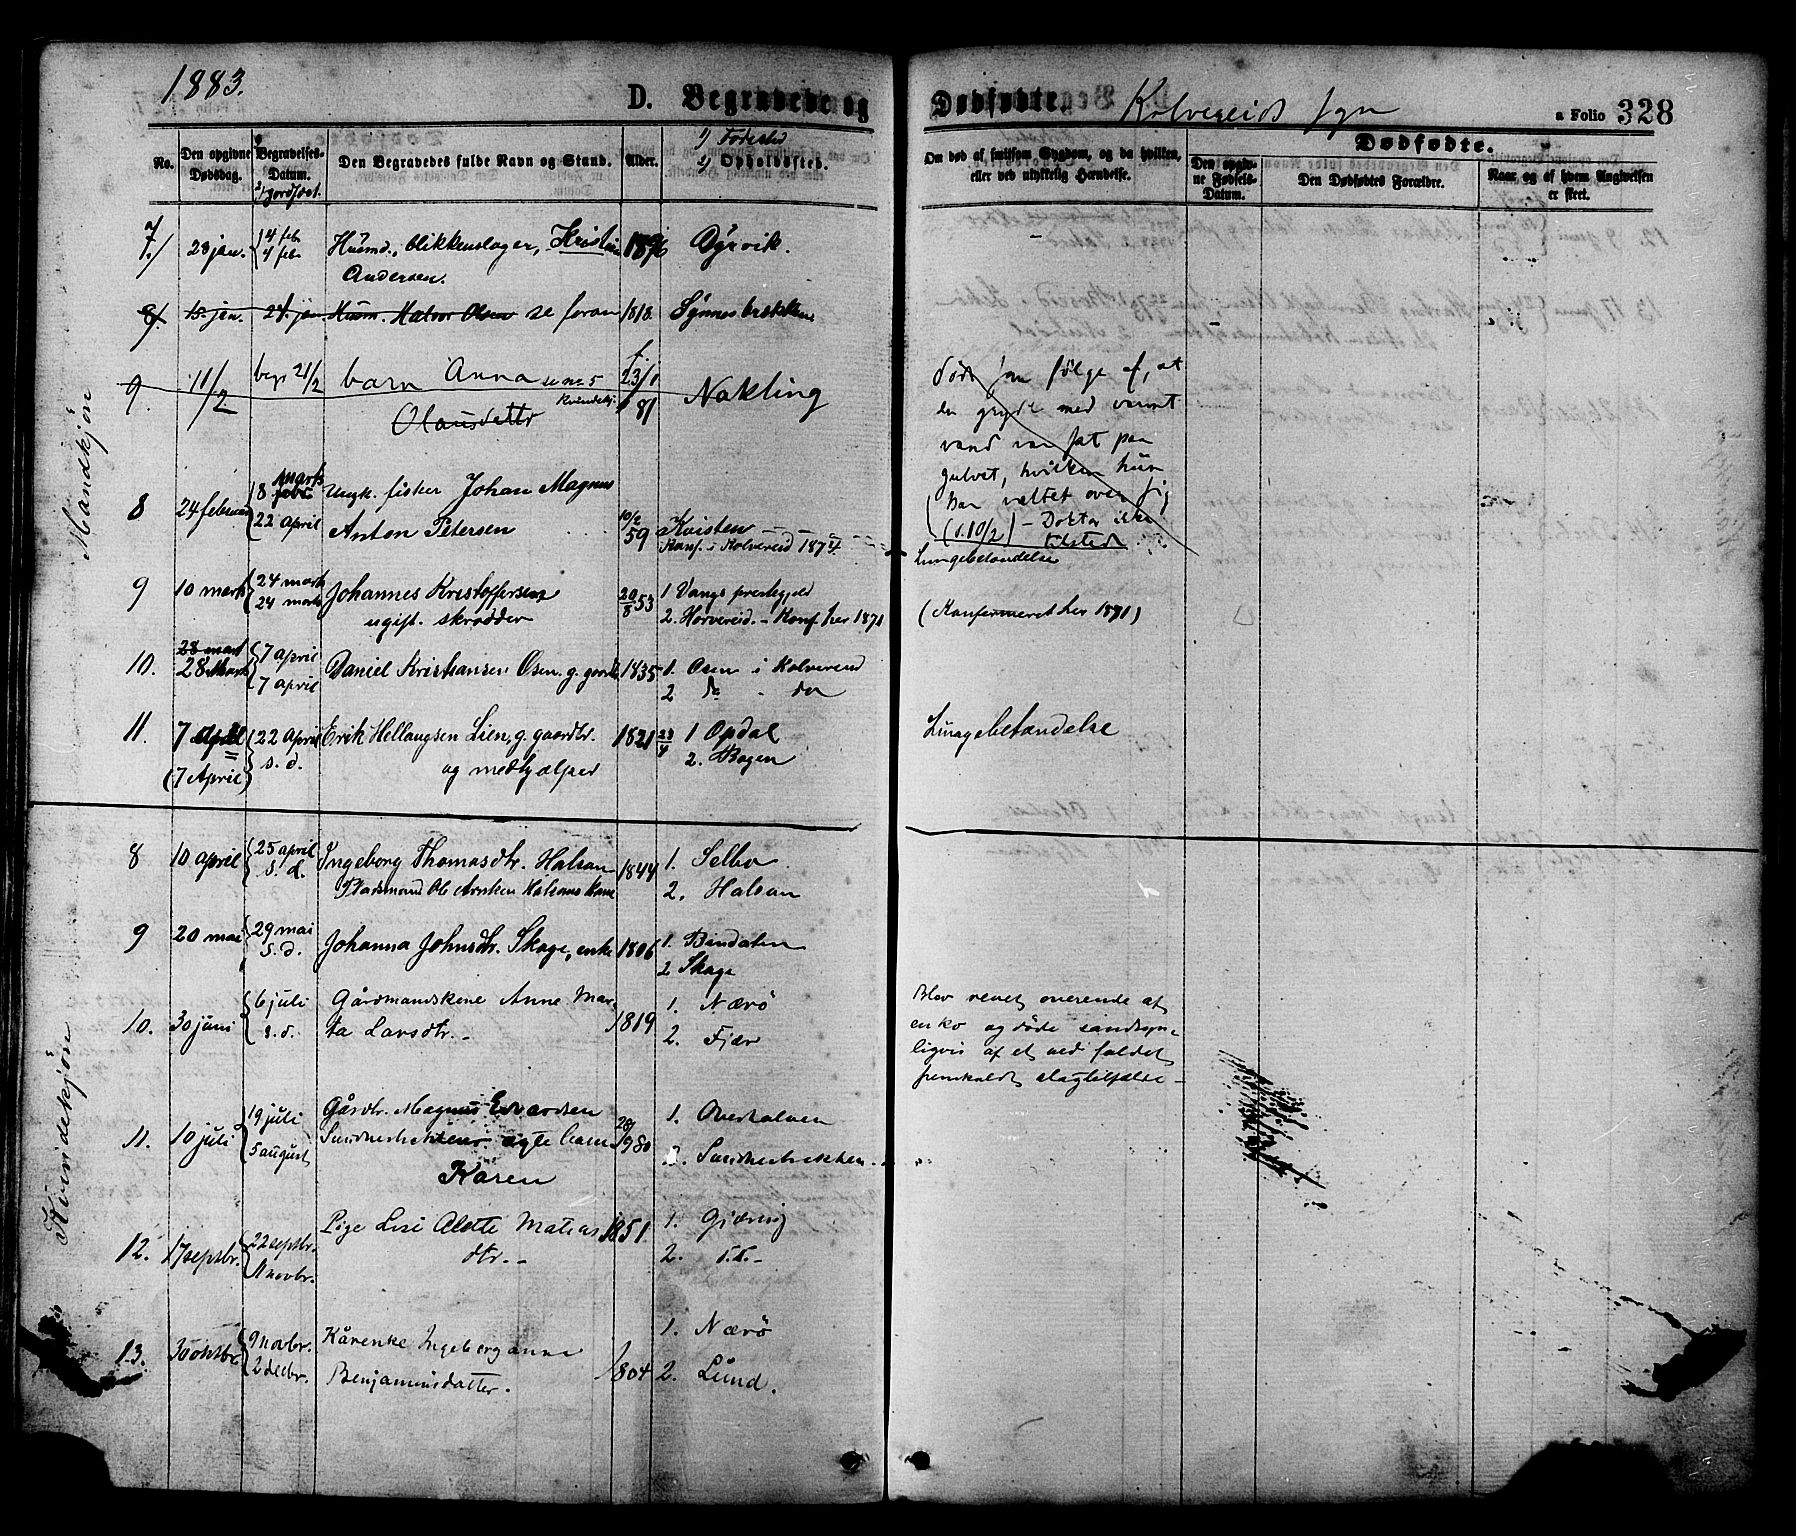 1883.
D. Begravede og Dødfødte. Kolvereids sogn
a Folio 328
No. Den opgivne Dødsdag. Begravelses-Datum. 2) Jordfæst. Den Begravedes fulde Navn og Stand. Alder. 1) Fødested 2) Opholdssted. Om død af smitsom Sygdom, og da hvilken, eller ved ulykkelig Hændelse. Dødfødte. Den opgivne Fødsels-Datum. Den Dødfødtes Forældre. Naar og af hvem Angivelsen er skeet.
Mandkjøn
7. 23 jan. 4 feb. Husmd., blikkenslager, Kristian 1896 Dyrvik.
4 feb. Andersen.
8 15 jan. 24. jan Husm. Halvor Olsen se foran 1818. Synnesbrekken
9. 11/2 begr 21/2 barn Anna se no 5 f. 23/1 81 Nakling
kvindekj.
Olausdattr
døde som følge af, at
en gryde med varmt
vand var sat paa
gulvet, hvilken hun
har væltet over sig
(d. 10/2) - Doktor ikke
tilstede
8 24 februar 8 marts Ungk. fisker Johan Magnus 10/2 59 Kvisten
22 april Anton Petersen Konf. i Kolvereid 1874.
Lungebetændelse
9 10 marts 24 marts Johannes Kristoffersen 20/8 53 1 Vangs prestegjeld
24 marts ugift. skrædder 2. Horvereid. - Konf. her 1871
(Konfirmeret her 1871)
10. 28 mart 7 april Daniel Kristiansen Osen. g. gaardb. 1835 1. Osen i Kolvereid
28 Mart 7 april 2 do do
11. 7 April 22 April Erik Hellaugsen Lien, g. gaardbr. 1821 23/4 1 Opdal
(7 April) s. d. og medhjælper 2. Bogen
Lungebetændelse
Kvindekjøn
8 10 april 25 april Ingeborg Thomasdtr. Halsan 1844 1. Selbo
s. d. Pladsmand Ole Arntsen Halsans kone 2. Halsan
9 20 mai 29 mai Johanna Johnsdtr. Skage, enke 1806 1. Bindalen
s. d. 2 Skage
10. 30 juni 6 juli Gårdmandskone Anne Mar- 1819 1. Nærö
s. d. ta Larsdtr. - 2. Fjær
Blev revet overende af
en ko og døde sandsyn-
ligvis af et ved faldet
fremkaldt slagtilfælde -
11. 10 juli 19 juli Gårdbr. Magnus Edvardsen 28/9 80 1. Overhalven
5 august Sundnesbekkens ægte barn 2. Sundnesbekken
Karen
12. 17 septbr. 22 septbr. Pige Lise Alette Matias 1851. 1. Gjærvig
11 novbr. dtr. - 2. s. s. -
13. 30 oktbr. 9 novbr. Kårenke Ingeborganna 1804 1. Nærö
2 decbr. Benjaminsdatter. 2. Lund.